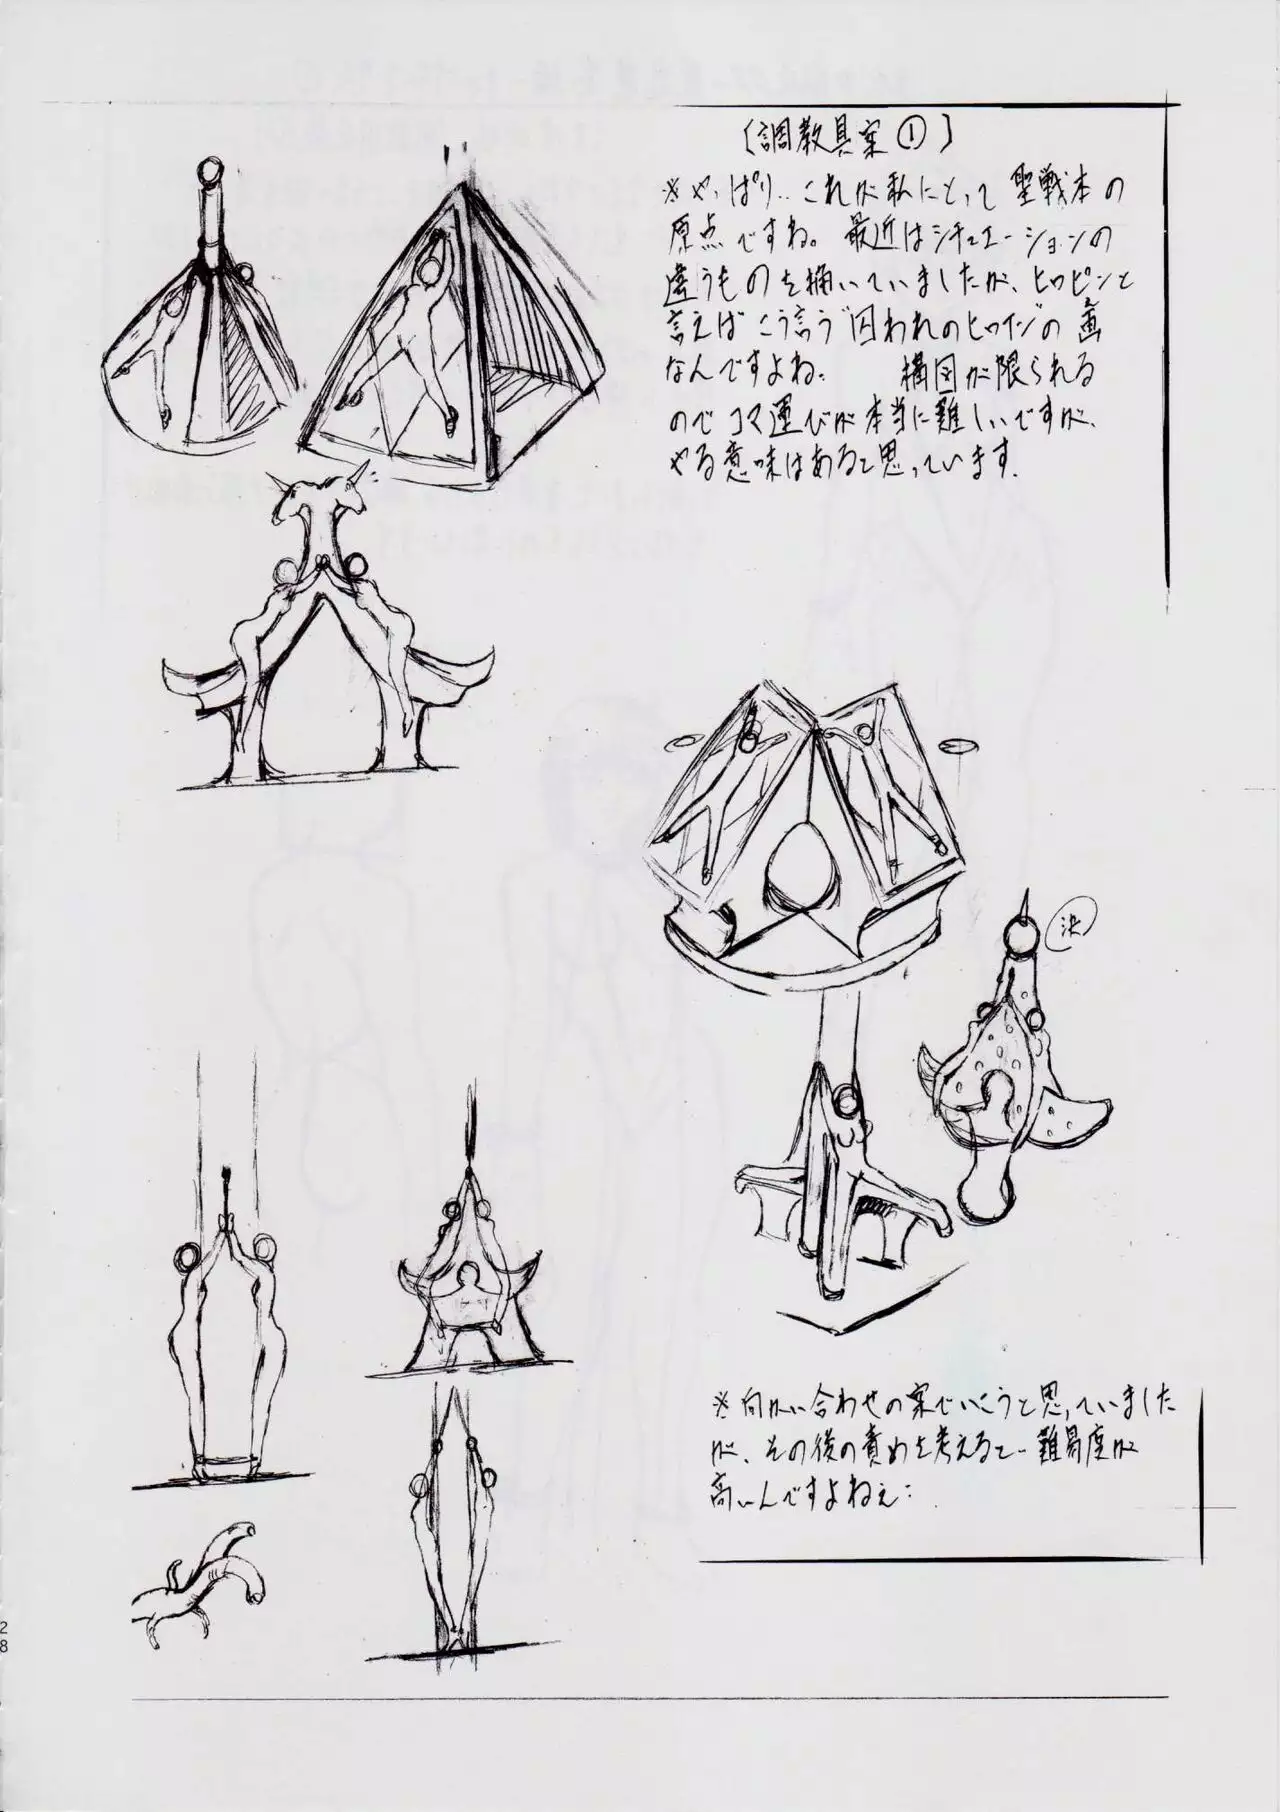 〔調教具案①〕
※やっぱり‥これが私にとって聖戦本の
原点ですね。最近はシチュエーションの
違うものを描いていましたが、ヒロピンと
言えばこう言う“囚われのヒロイン”の画
なんですよね: 構図が限られる
のでコマ運びが本当に難しいですが、
やる意味はあると思っています.
決
※向かい合わせの案でいこうと思っていました
が、その後の責めを考えると‥難易度が
高いんですよねぇ:
28